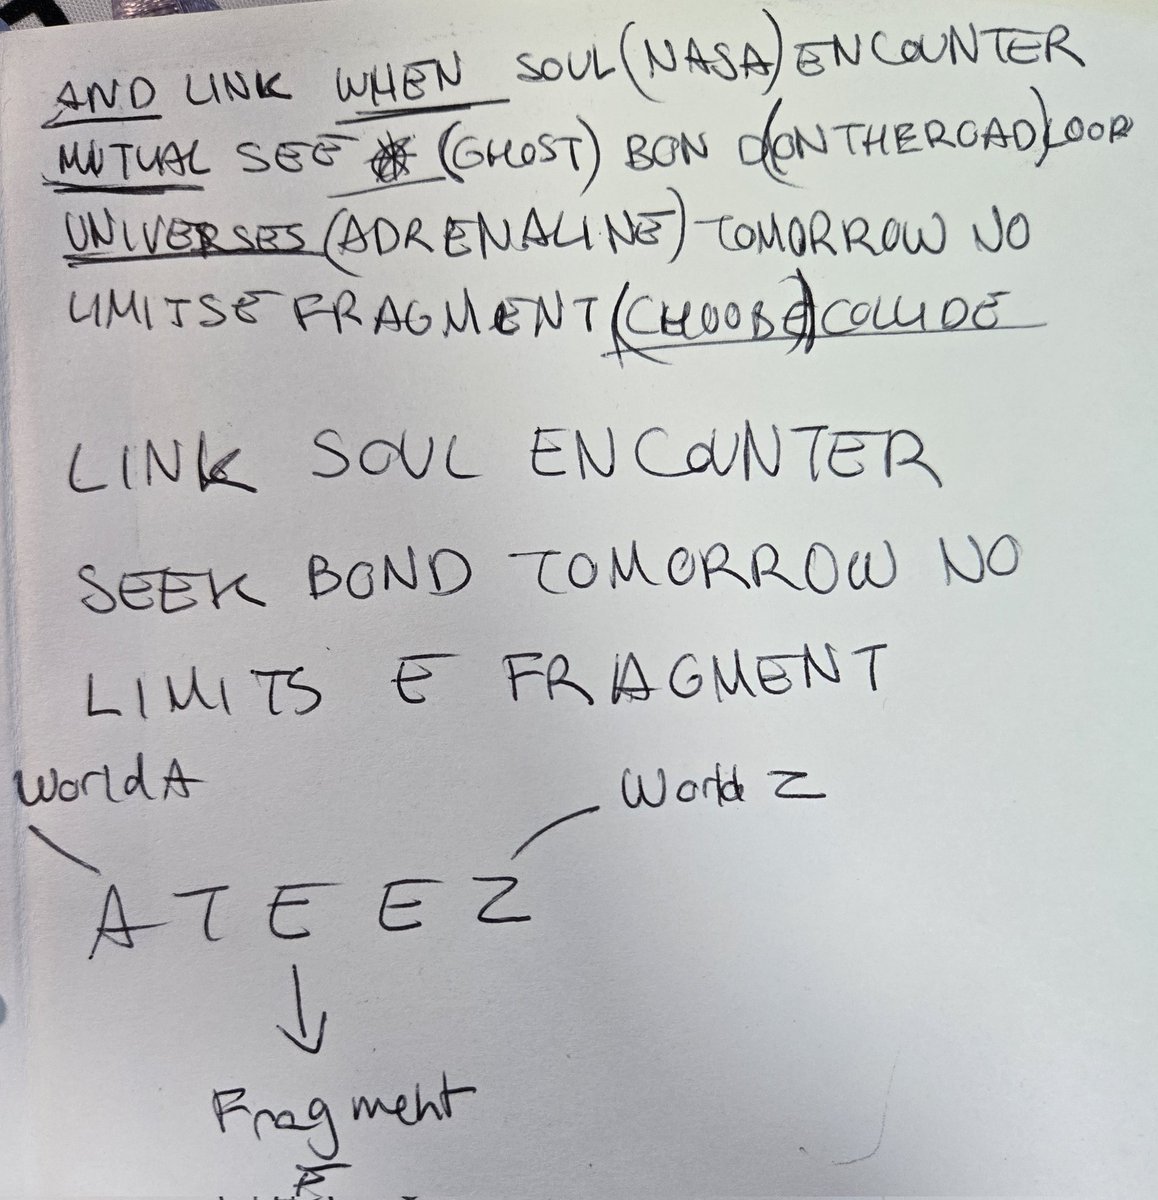 AND LINK WHEN SOUL (NASA) ENCOUNTER
MUTUAL SEE (GHOST) BON D(ONTHEROAD)LOOP
UNIVERSES (ADRENALINE) TOMORROW NO
LIMITSE FRAGMENT (CHOOSE) COLLIDE
LINK SOUL ENCOUNTER
SEEK BOND TOMORROW NO
LIMITS E FRAGMENT
World A
World Z
A T E E Z
Fragment
E